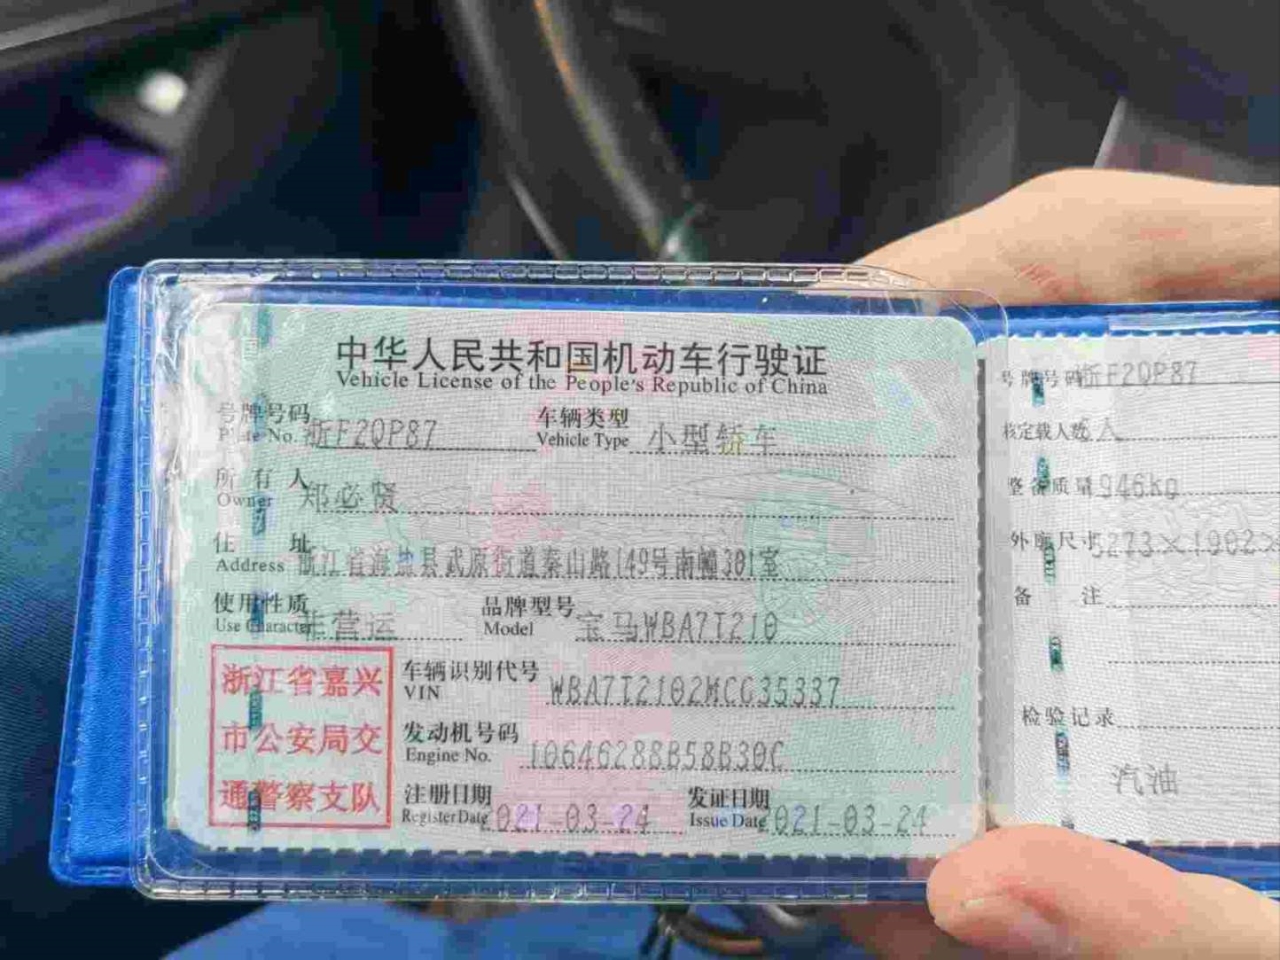 中华人民共和国机动车行驶证
Vehicle License of the People's Republic of China
号牌号码 浙F2QP87 车辆类型 小型轿车
Plate No. Vehicle Type
所有人 郑必贤
Owner
住址 浙江省海盐县武原街道秦山路149号南幢301室
Address
使用性质 非营运 品牌型号 宝马WBA7T210
Use Character Model
浙江省嘉兴
市公安局交
通警察支队
车辆识别代号
VIN WBA7T2102MCG35337
发动机号码
Engine No. 10646288B58B30C
注册日期 2021-03-24 发证日期 2021-03-24
Register Date Issue Date
号牌号码 浙F2QP87
核定载人数 人
整备质量 946kg
外廓尺寸 5273×1902×
备注
检验记录
汽油